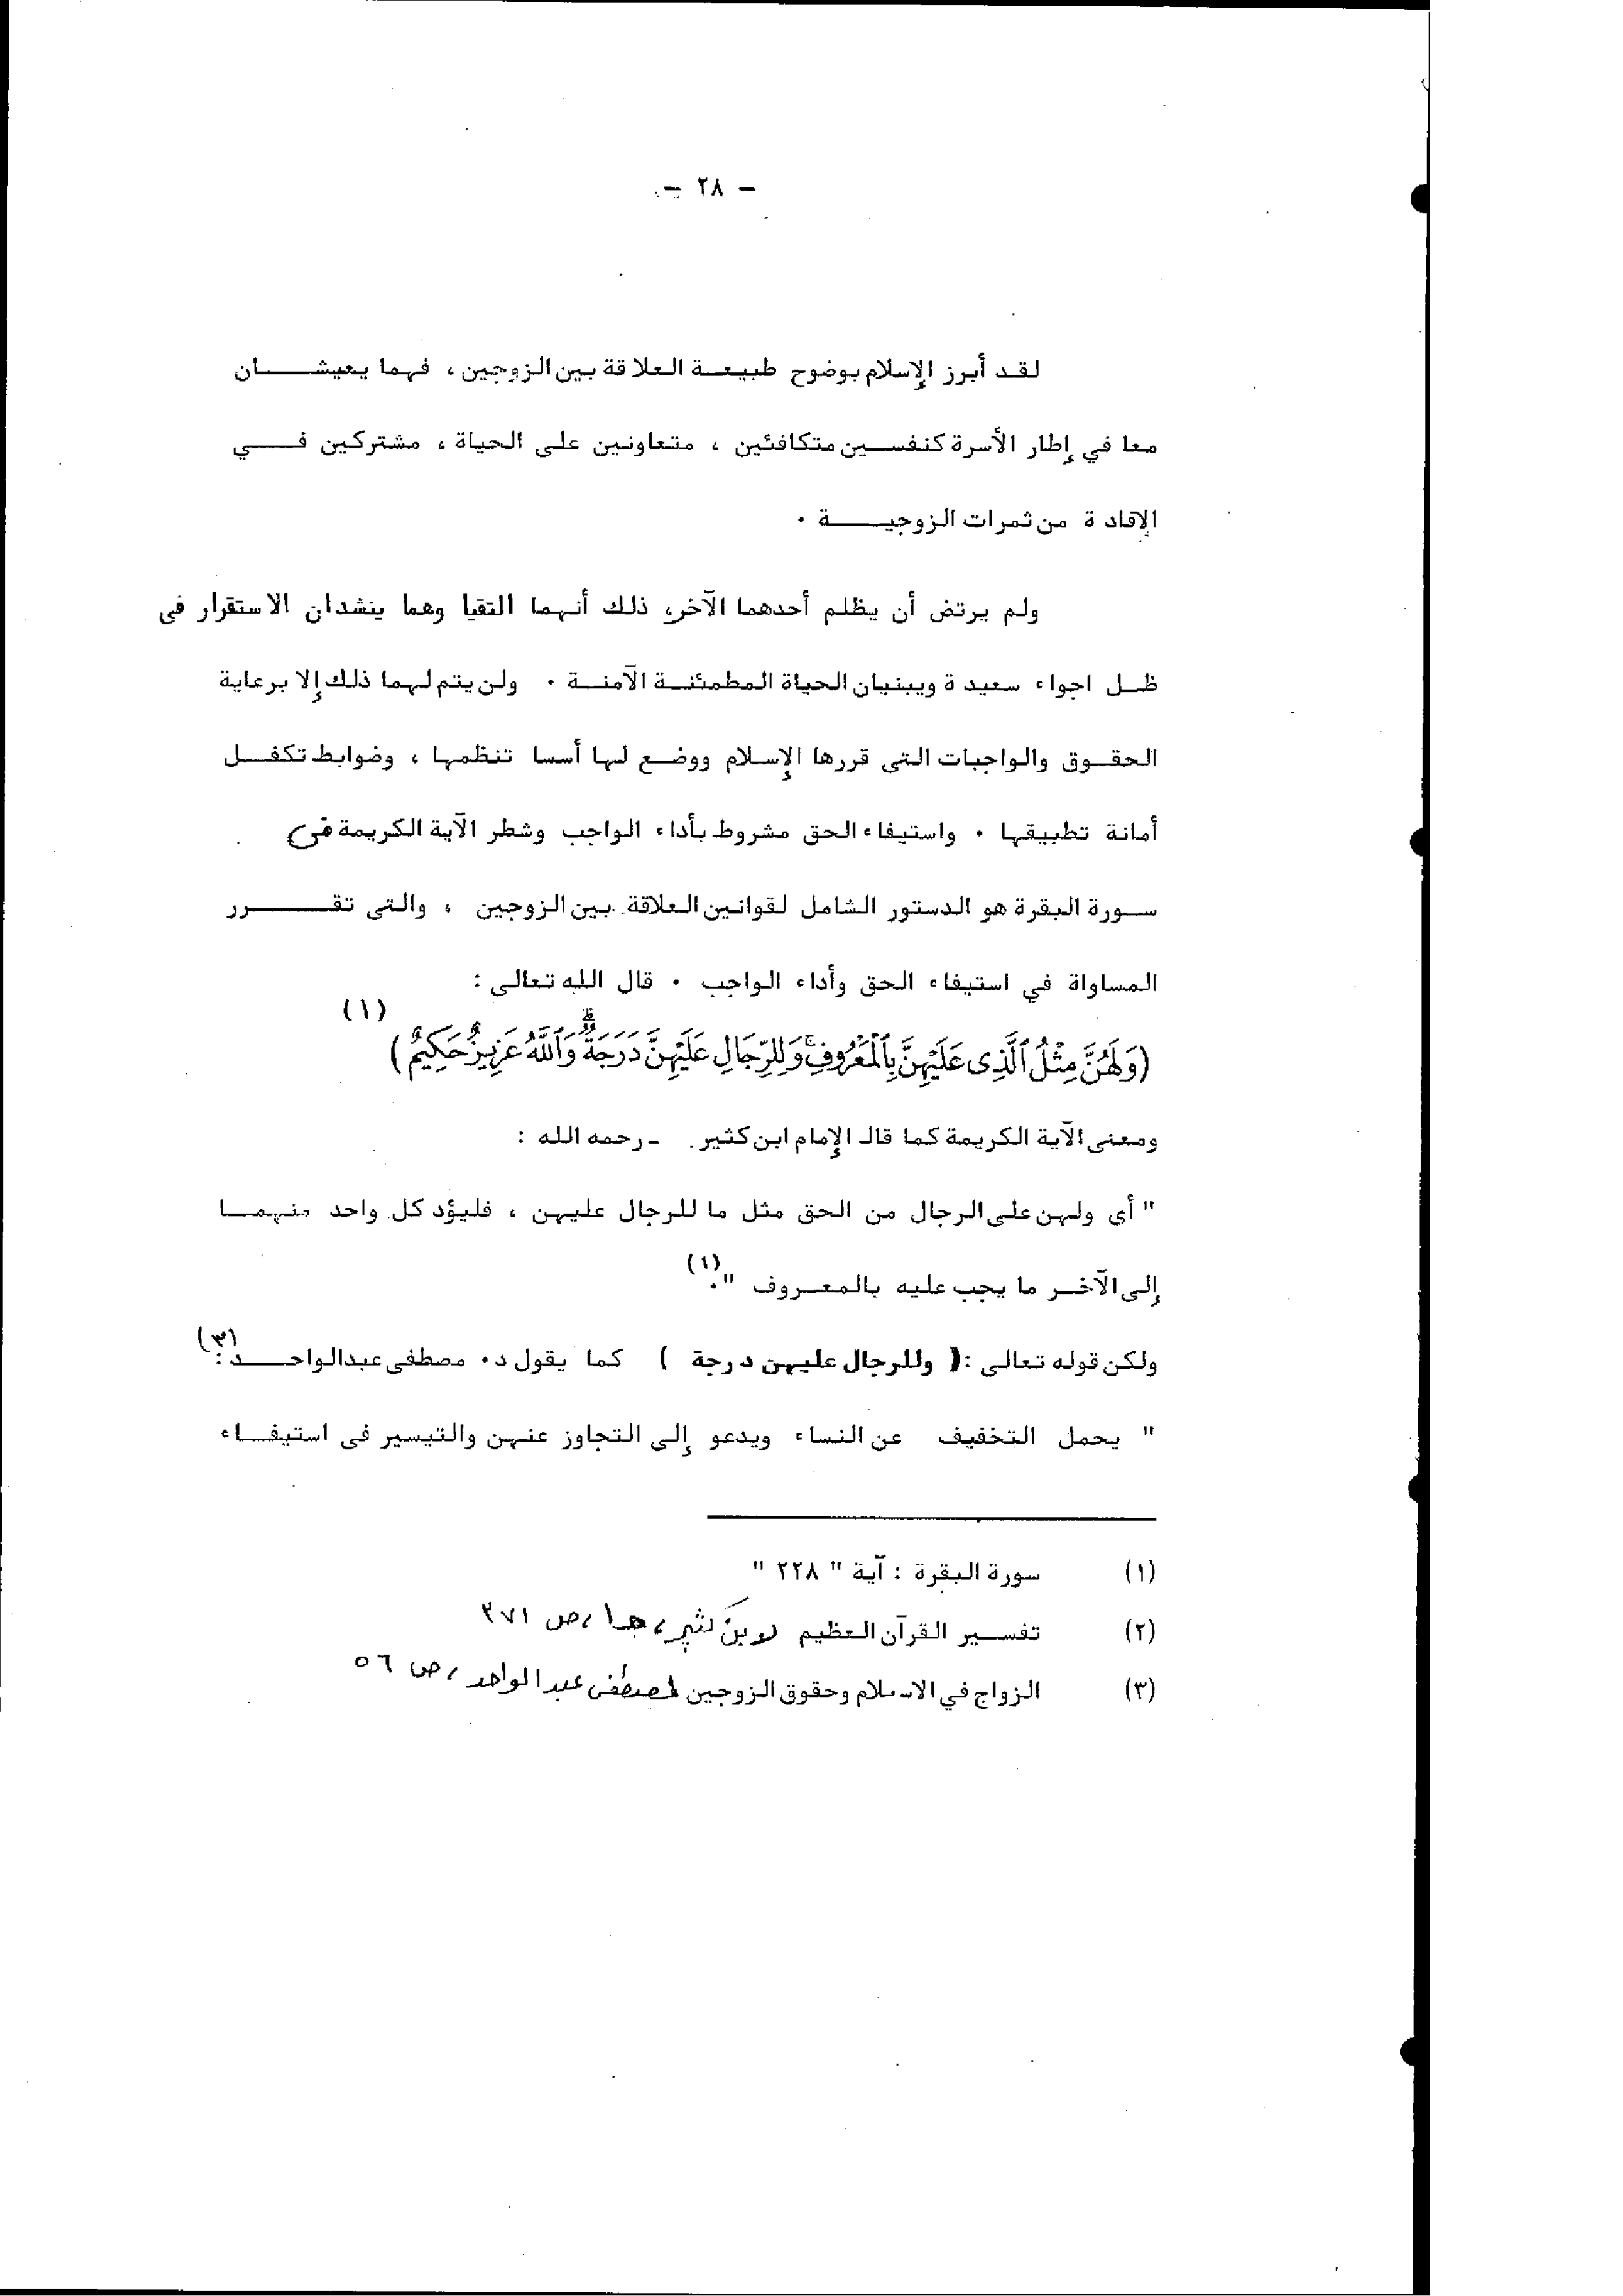 - ٢٨ -
لقد أبرز الإسلام بوضوح طبيعة العلاقة بين الزوجين ، فهما يعيشان
معا في إطار الأسرة كنفسين متكافئين ، متعاونين على الحياة ، مشتركين في
الإفادة من ثمرات الزوجية .
ولم يرتض أن يظلم أحدهما الآخر، ذلك أنهما التقيا وهما ينشدان الاستقرار فى
ظل اجواء سعيدة ويبنيان الحياة المطمئنة الآمنة . ولن يتم لهما ذلك إلا برعاية
الحقوق والواجبات التى قررها الإسلام ووضع لها أسسا تنظمها ، وضوابط تكفل
أمانة تطبيقها . واستيفاء الحق مشروط بأداء الواجب وشطر الآية الكريمة في
سورة البقرة هو الدستور الشامل لقوانين العلاقة بين الزوجين ، والتى تقرر
المساواة في استيفاء الحق وأداء الواجب . قال الله تعالى :
(وَلَهُنَّ مِثْلُ ٱلَّذِى عَلَيْهِنَّ بِٱلْمَعْرُوفِۚ وَلِلرِّجَالِ عَلَيْهِنَّ دَرَجَةٌۗ وَٱللَّهُ عَزِيزٌ حَكِيمٌ) (١)
ومعنى الآية الكريمة كما قال الإمام ابن كثير - رحمه الله :
" أي ولهن على الرجال من الحق مثل ما للرجال عليهن ، فليؤد كل واحد منهما
إلى الآخر ما يجب عليه بالمعروف ". (١)
ولكن قوله تعالى :( وللرجال عليهن درجة ) كما يقول د. مصطفى عبدالواحد : (٣)
" يحمل التخفيف عن النساء ويدعو إلى التجاوز عنهن والتيسير فى استيفاء
(١) سورة البقرة : آية " ٢٢٨ "
(٢) تفسير القرآن العظيم لابن كثير ، حـ١ ، ص ٢٧١
(٣) الزواج في الاسلام وحقوق الزوجين لمصطفى عبد الواحد ، ص ٥٦